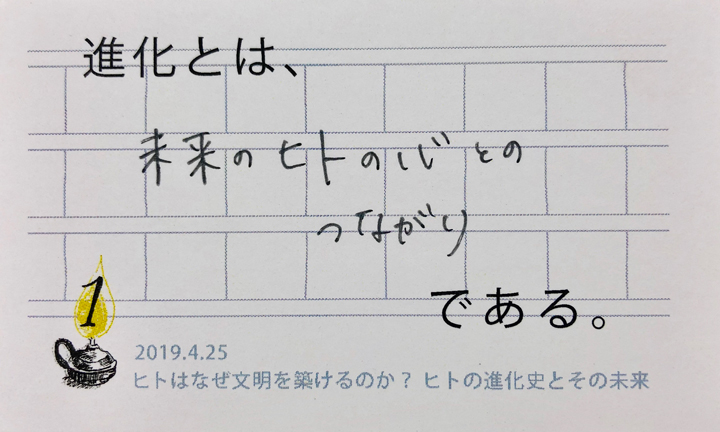 進化とは、
未来のヒトの心との
つながり
である。
1
2019.4.25
ヒトはなぜ文明を築けるのか？ ヒトの進化史とその未来